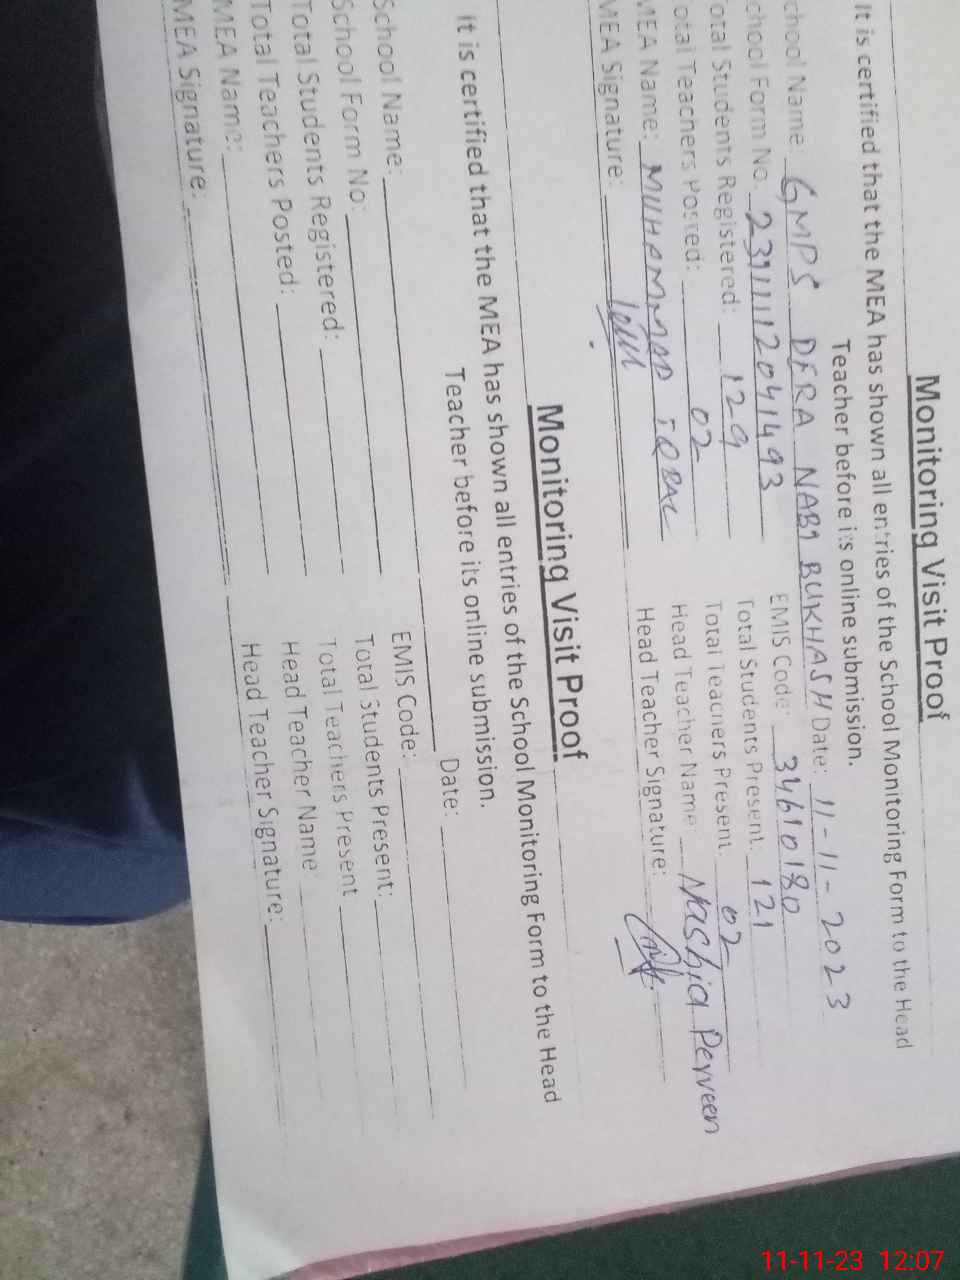 Monitoring Visit Proof
It is certified that the MEA has shown all entries of the School Monitoring Form to the Head
Teacher before its online submission.
chool Name: GMPS DERA NABI BUKHASH Date: 11-11-2023
chool Form No. 23111112041493 EMIS Code: 34610180
otal Students Registered: 129 Total Students Present: 121
otal Teachers Posted: 02 Total Teachers Present: 02
MEA Name: MUHAMMAD IQBAL Head Teacher Name Nashia Perveen
MEA Signature: Head Teacher Signature:
Monitoring Visit Proof
It is certified that the MEA has shown all entries of the School Monitoring Form to the Head
Teacher before its online submission.
School Name: Date:
School Form No: EMIS Code:
Total Students Registered: Total Students Present:
Total Teachers Posted: Total Teachers Present
MEA Name: Head Teacher Name
MEA Signature: Head Teacher Signature:
11-11-23 12:07